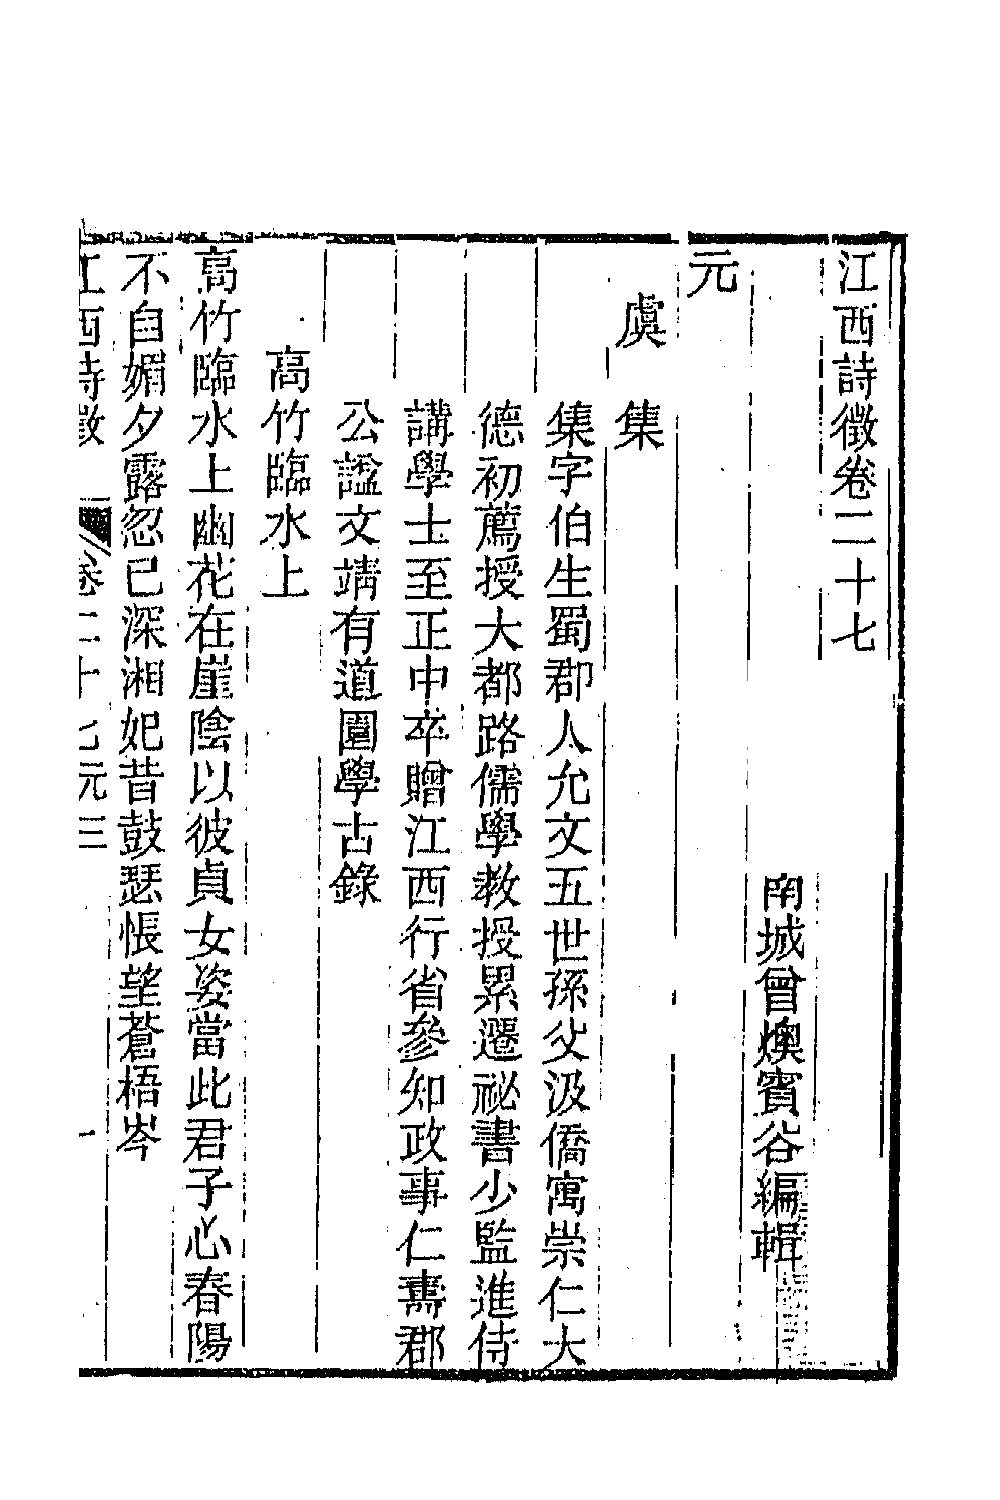 江西詩徵卷二十七
南城曾燠賓谷編輯
元
虞集
集字伯生蜀郡人允文五世孫父汲僑寓崇仁大
德初薦授大都路儒學教授累遷祕書少監進侍
講學士至正中卒贈江西行省參知政事仁壽郡
公諡文靖有道園學古錄
高竹臨水上
高竹臨水上幽花在崖陰以彼貞女姿當此君子心春陽
不自媚夕露忽已深湘妃昔鼓瑟悵望蒼梧岑
江西詩徵 卷二十七元三 一